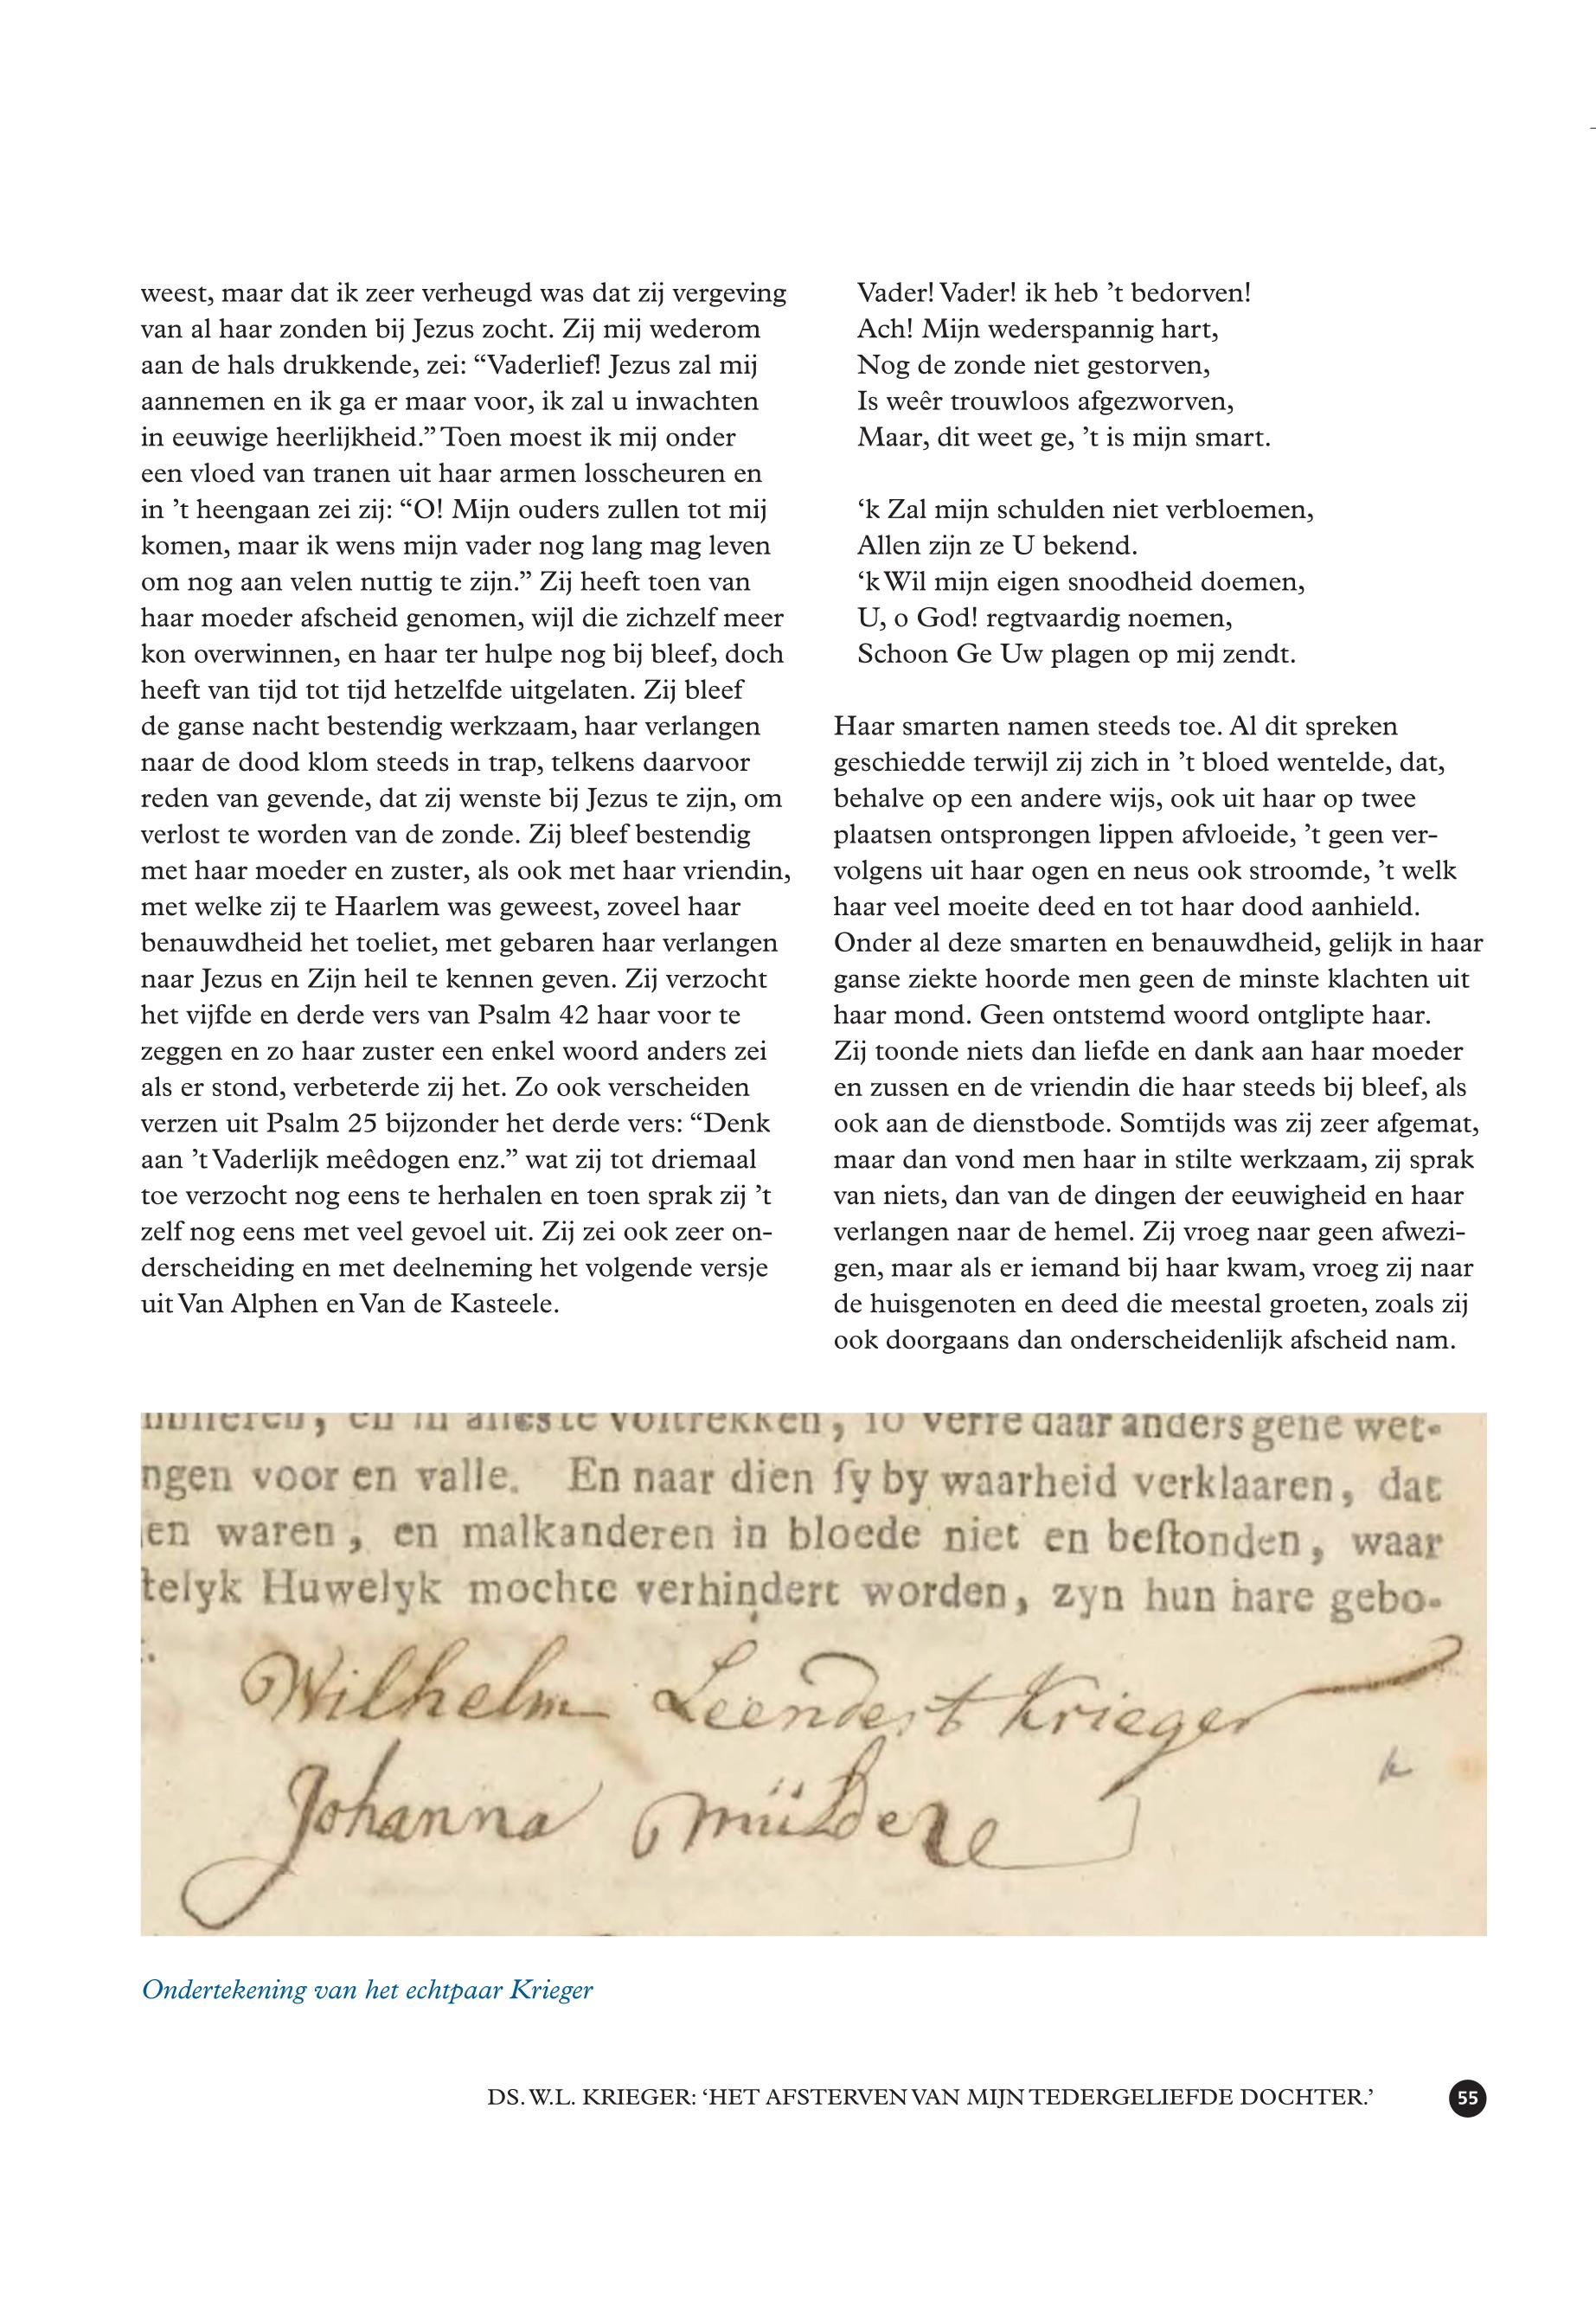 weest, maar dat ik zeer verheugd was dat zij vergeving
van al haar zonden bij Jezus zocht. Zij mij wederom
aan de hals drukkende, zei: “Vaderlief! Jezus zal mij
aannemen en ik ga er maar voor, ik zal u inwachten
in eeuwige heerlijkheid.” Toen moest ik mij onder
een vloed van tranen uit haar armen losscheuren en
in ’t heengaan zei zij: “O! Mijn ouders zullen tot mij
komen, maar ik wens mijn vader nog lang mag leven
om nog aan velen nuttig te zijn.” Zij heeft toen van
haar moeder afscheid genomen, wijl die zichzelf meer
kon overwinnen, en haar ter hulpe nog bij bleef, doch
heeft van tijd tot tijd hetzelfde uitgelaten. Zij bleef
de ganse nacht bestendig werkzaam, haar verlangen
naar de dood klom steeds in trap, telkens daarvoor
reden van gevende, dat zij wenste bij Jezus te zijn, om
verlost te worden van de zonde. Zij bleef bestendig
met haar moeder en zuster, als ook met haar vriendin,
met welke zij te Haarlem was geweest, zoveel haar
benauwdheid het toeliet, met gebaren haar verlangen
naar Jezus en Zijn heil te kennen geven. Zij verzocht
het vijfde en derde vers van Psalm 42 haar voor te
zeggen en zo haar zuster een enkel woord anders zei
als er stond, verbeterde zij het. Zo ook verscheiden
verzen uit Psalm 25 bijzonder het derde vers: “Denk
aan ’t Vaderlijk meêdogen enz.” wat zij tot driemaal
toe verzocht nog eens te herhalen en toen sprak zij ’t
zelf nog eens met veel gevoel uit. Zij zei ook zeer on-
derscheiding en met deelneming het volgende versje
uit Van Alphen en Van de Kasteele.
Vader! Vader! ik heb ’t bedorven!
Ach! Mijn wederspannig hart,
Nog de zonde niet gestorven,
Is weêr trouwloos afgezworven,
Maar, dit weet ge, ’t is mijn smart.
‘k Zal mijn schulden niet verbloemen,
Allen zijn ze U bekend.
‘k Wil mijn eigen snoodheid doemen,
U, o God! regtvaardig noemen,
Schoon Ge Uw plagen op mij zendt.
Haar smarten namen steeds toe. Al dit spreken
geschiedde terwijl zij zich in ’t bloed wentelde, dat,
behalve op een andere wijs, ook uit haar op twee
plaatsen ontsprongen lippen afvloeide, ’t geen ver-
volgens uit haar ogen en neus ook stroomde, ’t welk
haar veel moeite deed en tot haar dood aanhield.
Onder al deze smarten en benauwdheid, gelijk in haar
ganse ziekte hoorde men geen de minste klachten uit
haar mond. Geen ontstemd woord ontglipte haar.
Zij toonde niets dan liefde en dank aan haar moeder
en zussen en de vriendin die haar steeds bij bleef, als
ook aan de dienstbode. Somtijds was zij zeer afgemat,
maar dan vond men haar in stilte werkzaam, zij sprak
van niets, dan van de dingen der eeuwigheid en haar
verlangen naar de hemel. Zij vroeg naar geen afwezi-
gen, maar als er iemand bij haar kwam, vroeg zij naar
de huisgenoten en deed die meestal groeten, zoals zij
ook doorgaans dan onderscheidenlijk afscheid nam.
en in alles te voltrekken, ſo verre daar anders gene wet-
ngen voor en valle. En naar dien ſy by waarheid verklaaren, dat
en waren, en malkanderen in bloede niet en beſtonden, waar
telyk Huwelyk mochte verhindert worden, zyn hun hare gebo-
Wilhelm Leendert Krieger
Johanna Müldere
Ondertekening van het echtpaar Krieger
DS. W.L. KRIEGER: ‘HET AFSTERVEN VAN MIJN TEDERGELIEFDE DOCHTER.’
55